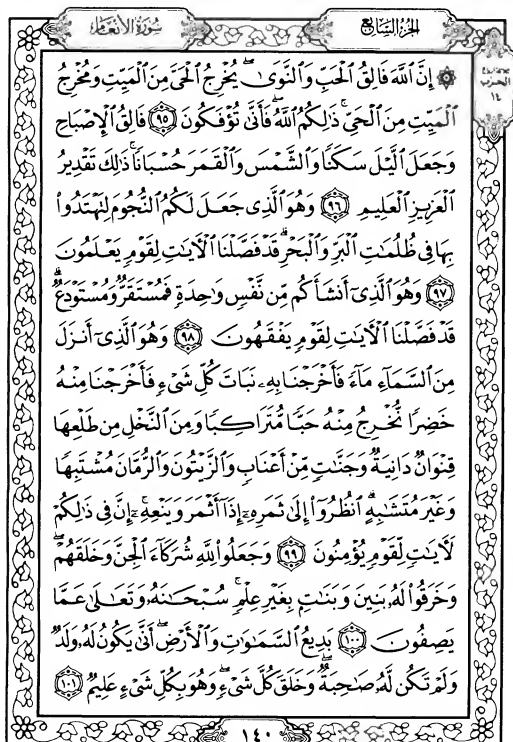 سُورَةُ الأَنْعَامِ
الجُزْءُ السَّابِعُ
الحزب
١٤
۞ إِنَّ ٱللَّهَ فَالِقُ ٱلْحَبِّ وَٱلنَّوَىٰۖ يُخْرِجُ ٱلْحَيَّ مِنَ ٱلْمَيِّتِ وَمُخْرِجُ
ٱلْمَيِّتِ مِنَ ٱلْحَيِّۚ ذَٰلِكُمُ ٱللَّهُۖ فَأَنَّىٰ تُؤْفَكُونَ ٩٥ فَالِقُ ٱلْإِصْبَاحِ
وَجَعَلَ ٱلَّيْلَ سَكَنًا وَٱلشَّمْسَ وَٱلْقَمَرَ حُسْبَانًاۚ ذَٰلِكَ تَقْدِيرُ
ٱلْعَزِيزِ ٱلْعَلِيمِ ٩٦ وَهُوَ ٱلَّذِى جَعَلَ لَكُمُ ٱلنُّجُومَ لِتَهْتَدُوا۟
بِهَا فِى ظُلُمَٰتِ ٱلْبَرِّ وَٱلْبَحْرِۗ قَدْ فَصَّلْنَا ٱلْءَايَٰتِ لِقَوْمٍ يَعْلَمُونَ
٩٧ وَهُوَ ٱلَّذِىٓ أَنشَأَكُم مِّن نَّفْسٍ وَٰحِدَةٍ فَمُسْتَقَرٌّ وَمُسْتَوْدَعٌۗ
قَدْ فَصَّلْنَا ٱلْءَايَٰتِ لِقَوْمٍ يَفْقَهُونَ ٩٨ وَهُوَ ٱلَّذِىٓ أَنزَلَ
مِنَ ٱلسَّمَآءِ مَآءً فَأَخْرَجْنَا بِهِۦ نَبَاتَ كُلِّ شَىْءٍ فَأَخْرَجْنَا مِنْهُ
خَضِرًا نُّخْرِجُ مِنْهُ حَبًّا مُّتَرَاكِبًا وَمِنَ ٱلنَّخْلِ مِن طَلْعِهَا
قِنْوَانٌ دَانِيَةٌ وَجَنَّٰتٍ مِّنْ أَعْنَابٍ وَٱلزَّيْتُونَ وَٱلرُّمَّانَ مُشْتَبِهًا
وَغَيْرَ مُتَشَٰبِهٍۗ ٱنظُرُوٓا۟ إِلَىٰ ثَمَرِهِۦٓ إِذَآ أَثْمَرَ وَيَنْعِهِۦٓۚ إِنَّ فِى ذَٰلِكُمْ
لَءَايَٰتٍ لِّقَوْمٍ يُؤْمِنُونَ ٩٩ وَجَعَلُوا۟ لِلَّهِ شُرَكَآءَ ٱلْجِنَّ وَخَلَقَهُمْۖ
وَخَرَقُوا۟ لَهُۥ بَنِينَ وَبَنَٰتٍۭ بِغَيْرِ عِلْمٍۚ سُبْحَٰنَهُۥ وَتَعَٰلَىٰ عَمَّا
يَصِفُونَ ١٠٠ بَدِيعُ ٱلسَّمَٰوَٰتِ وَٱلْأَرْضِۖ أَنَّىٰ يَكُونُ لَهُۥ وَلَدٌ
وَلَمْ تَكُن لَّهُۥ صَٰحِبَةٌۖ وَخَلَقَ كُلَّ شَىْءٍۖ وَهُوَ بِكُلِّ شَىْءٍ عَلِيمٌ ١٠١
١٤٠